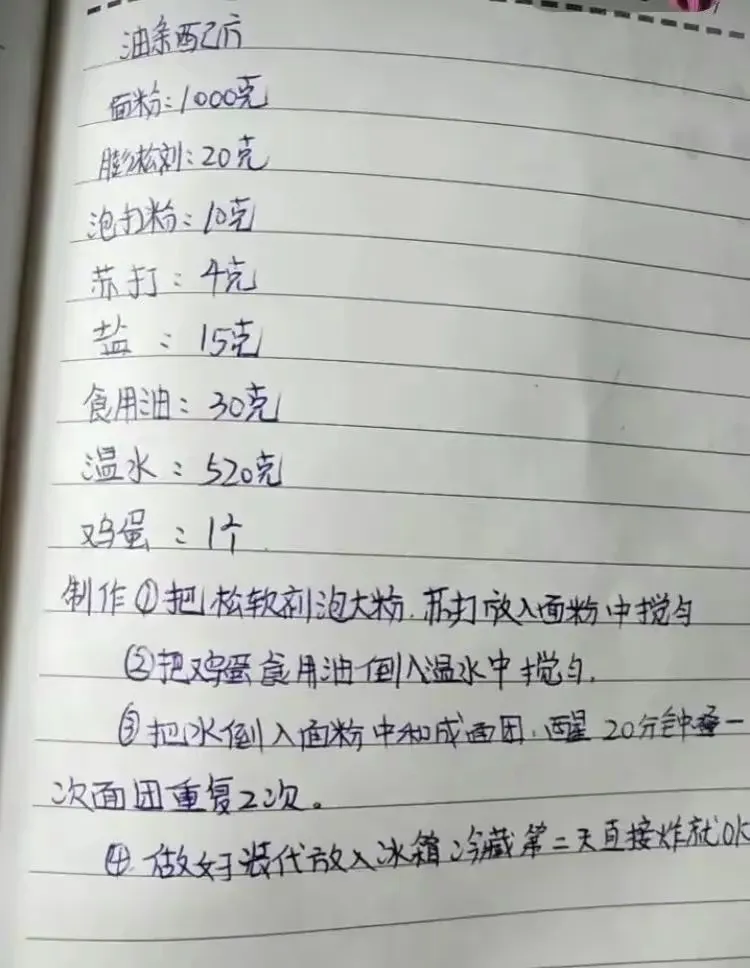 油条配方
面粉：1000克
膨松剂：20克
泡打粉：10克
苏打：4克
盐：15克
食用油：30克
温水：520克
鸡蛋：1个
制作①把松软剂泡大粉.苏打放入面粉中搅匀
②把鸡蛋食用油倒入温水中搅匀.
③把水倒入面粉中和成面团.醒20分钟叠一
次面团重复2次。
④.做好装代放入冰箱冷藏第二天直接炸就OK